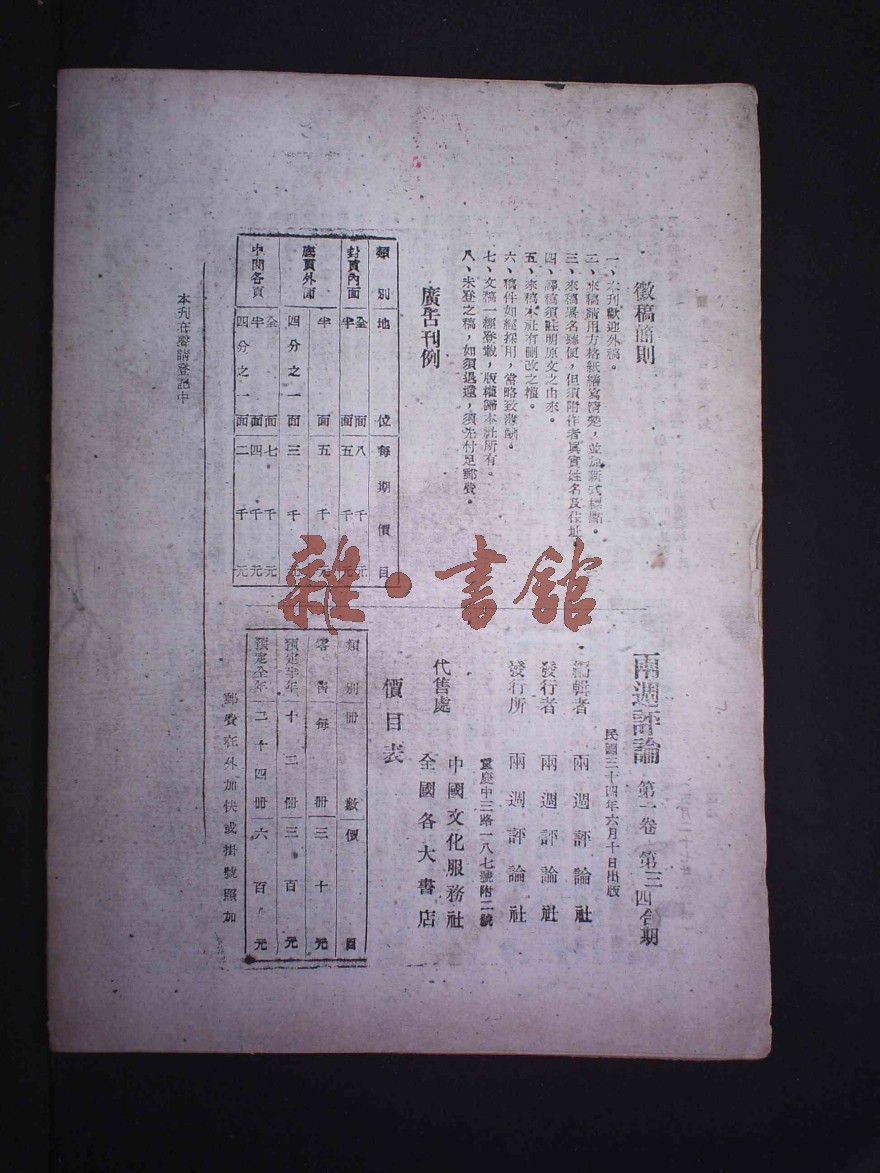 徵稿簡則
一、本刊歡迎外稿。
二、來稿請用方格紙繕寫清楚，並加新式標點。
三、來稿署名聽便，但須附作者眞實姓名及住址。
四、譯稿須註明原文之由來。
五、來稿本社有刪改之權。
六、稿件如經採用，當略致薄酬。
七、文稿一經登載，版權歸本社所有。
八、未登之稿，如須退還，須先付足郵費。
廣告刊例
類別 地位 每期價目
封頁內面 全面 八千元
半面 五千元
底頁外面 半面 五千元
四分之一面 三千元
中間各頁 全面 七千元
半面 四千元
四分之一面 二千元
本刊在聲請登記中
兩週評論 第一卷 第三四合期
民國三十四年六月十日出版
編輯者 兩週評論社
發行者 兩週評論社
發行所 兩週評論社
重慶中三路一八七號附二號
代售處 中國文化服務社
全國各大書店
價目表
類別 冊數 價目
零售 每冊 三十元
預定半年 十二冊 三百元
預定全年 二十四冊 六百元
郵費在外加快或掛號照加
雜·書館